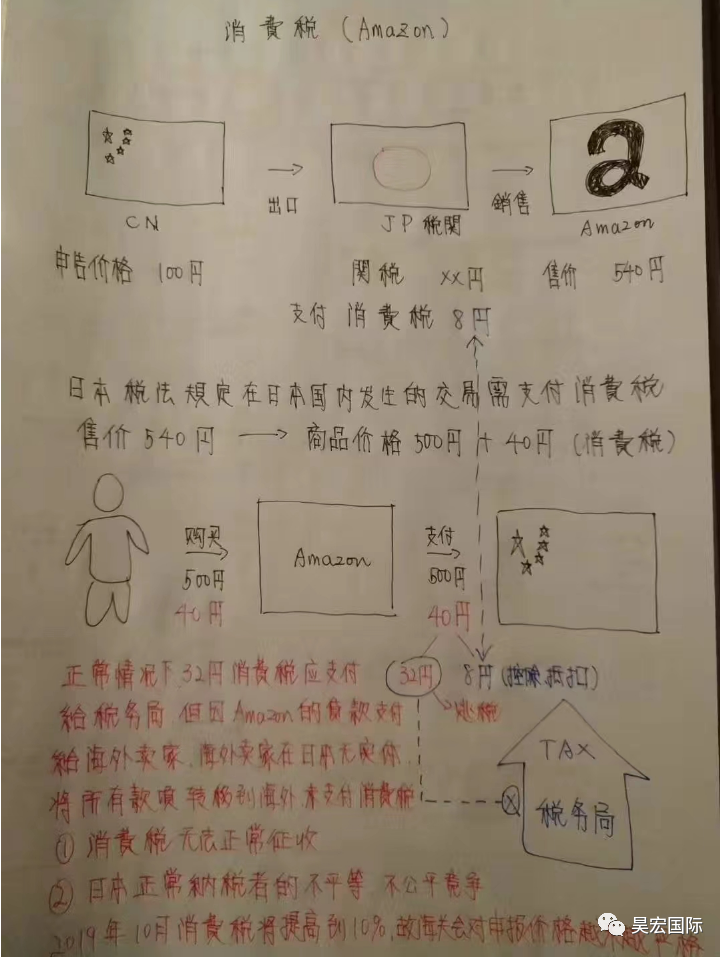 消費税 (Amazon)
出口
銷售
CN
JP 税関
Amazon
申告价格 100円
関税 xx円
售价 540円
支付 消費税 8円
日本税法規定在日本国内发生的交易需支付消費税
售价 540円 → 商品价格 500円 + 40円 (消費税)
购买
500円
40円
Amazon
支付
500円
40円
正常情况下 32円消費税应支付
32円
8円 (控除抵扣)
給税务局, 但因Amazon的货款支付
逃税
給海外卖家, 海外卖家在日本无
TAX
将所有款项转移到海外未支付消費税
税务局
① 消費税无法正常征收
② 日本正常納税者的不平等、不公平竞争
2019年10月消費税将提高到10%, 故海关会对申报价格越来越严格
昊宏国际